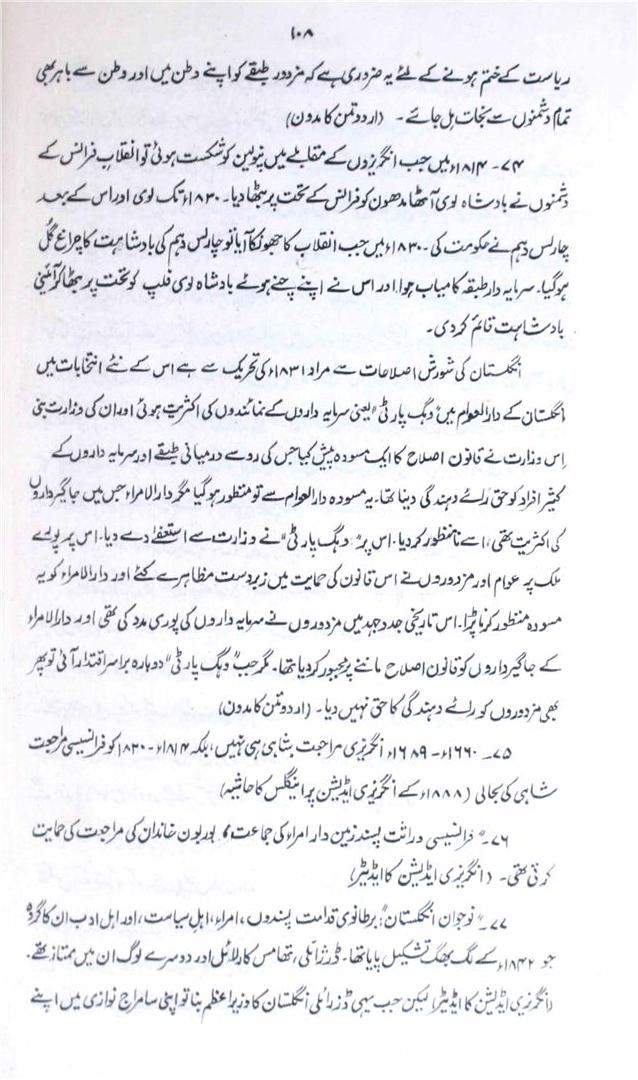 ۱۰۸
ریاست کے ختم ہونے کے لئے یہ ضروری ہے کہ مزدور طبقے کو اپنے وطن میں اور وطن سے باہر بھی
تمام دشمنوں سے نجات مل جائے۔ (اردو متن کا مدون)
۷۴۔ ۱۸۱۴ء میں جب انگریزوں کے مقابلے میں نپولین کو شکست ہوئی تو انقلاب فرانس کے
دشمنوں نے بادشاہ لوی آٹھا مدھون کو فرانس کے تخت پر بٹھا دیا۔ ۱۸۳۰ء تک لوی اور اس کے بعد
چارلس دہم نے حکومت کی۔ ۱۸۳۰ء میں جب انقلاب کا جھونکا آیا تو چارلس دہم کی بادشاہت کا چراغ گل
ہو گیا۔ سرمایہ دار طبقہ کامیاب ہوا اور اس نے اپنے چنے ہوئے بادشاہ لوی فلپ کو تخت پر بٹھا کر آئینی
بادشاہت قائم کر دی۔
انگلستان کی شورش اصلاحات سے مراد ۱۸۳۱ء کی تحریک سے ہے اس کے نئے انتخابات میں
انگلستان کے دارالعوام میں "وہگ پارٹی" یعنی سرمایہ داروں کے نمائندوں کی اکثریت ہوئی اور ان کی وزارت بنی
اس وزارت نے قانون اصلاح کا ایک مسودہ پیش کیا جس کی رو سے درمیانی طبقے اور سرمایہ داروں کے
کثیر افراد کو حق رائے دہندگی دینا تھا۔ یہ مسودہ دارالعوام سے تو منظور ہو گیا مگر دارالامراء جس میں جاگیرداروں
کی اکثریت تھی، اسے نامنظور کر دیا۔ اس پر "وہگ پارٹی" نے وزارت سے استعفےٰ دے دیا۔ اس پر پورے
ملک پر عوام اور مزدوروں نے اس قانون کی حمایت میں زبردست مظاہرے کئے اور دارالامراء کو یہ
مسودہ منظور کرنا پڑا۔ اس تاریخی جدوجہد میں مزدوروں نے سرمایہ داروں کی پوری مدد کی تھی اور دارالامراء
کے جاگیرداروں کو قانون اصلاح ماننے پر مجبور کر دیا تھا۔ مگر جب "وہگ پارٹی" دوبارہ برسر اقتدار آئی تو پھر
بھی مزدوروں کو رائے دہندگی کا حق نہیں دیا۔ (اردو متن کا مدون)
۷۵۔ ۱۶۶۰ء۔ ۱۶۸۹ء انگریزی مراجعت بشاہی ہی نہیں، بلکہ ۱۸۱۴ء۔ ۱۸۳۰ کو فرانسیسی مراجعت
شاہی کی بحالی (۱۸۸۸ء کے انگریزی ایڈیشن پر اینگلس کا حاشیہ)
۷۶۔ "فرانسیسی وراثت پسند زمین دار امراء کی جماعت، بوربون خاندان کی مراجعت کی حمایت
کرتی تھی۔ (انگریزی ایڈیشن کا ایڈیٹر)
۷۷۔ "نوجوان انگلستان": برطانوی قدامت پسندوں، امراء، اہل سیاست، اور اہل ادب ان کا گروہ
جو ۱۸۴۲ء کے لگ بھگ تشکیل پایا تھا۔ ڈزرائلی، تھامس کارلائل اور دوسرے لوگ ان میں ممتاز تھے۔
(انگریزی ایڈیشن کا ایڈیٹر) لیکن جب یہی ڈزرائلی انگلستان کا وزیر اعظم بنا تو اپنی سامراج نوازی میں اپنے